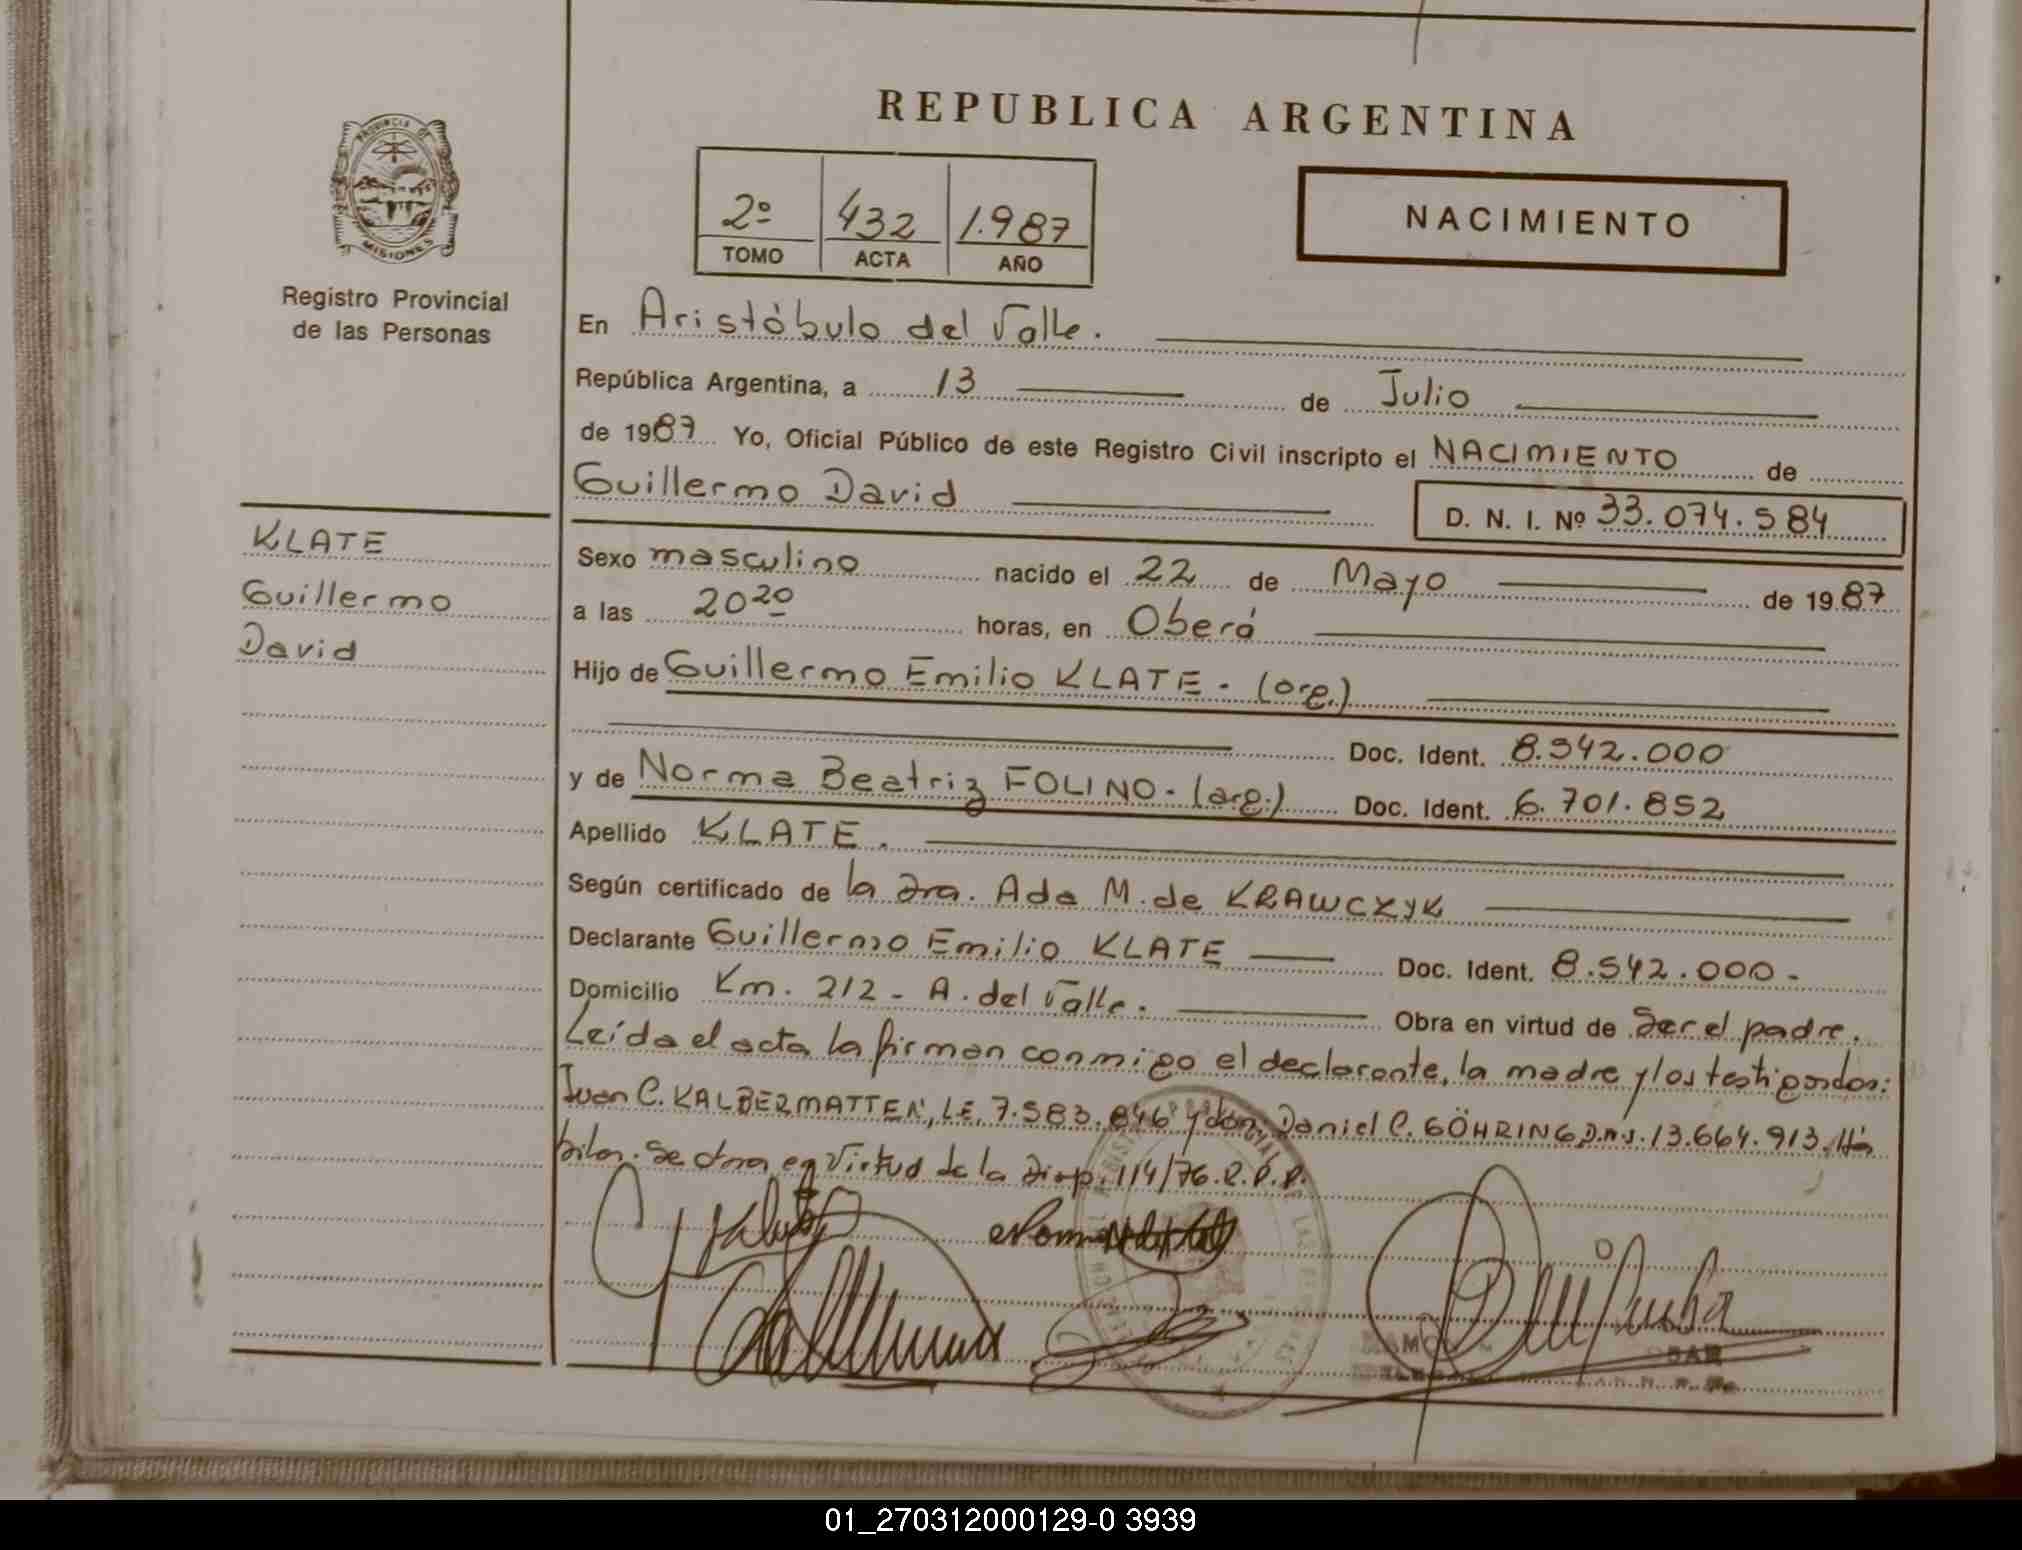 REPUBLICA ARGENTINA
PROVINCIA DE
MISIONES
Registro Provincial
de las Personas
2º 432 1.987
TOMO ACTA AÑO
NACIMIENTO
En Aristóbulo del Valle.
República Argentina, a 13 de Julio
de 1987 Yo, Oficial Público de este Registro Civil inscripto el NACIMIENTO de
Guillermo David
D. N. I. Nº 33.074.584
KLATE
Guillermo
David
Sexo masculino nacido el 22 de Mayo de 1987
a las 20 20 horas, en Oberá
Hijo de Guillermo Emilio KLATE - (arg.)
Doc. Ident. 8.542.000
y de Norma Beatriz FOLINO - (arg.) Doc. Ident. 6.701.852
Apellido KLATE.
Según certificado de la Dra. Ada M. de KRAWCZYK
Declarante Guillermo Emilio KLATE Doc. Ident. 8.542.000.-
Domicilio Km. 212 - A. del Valle. Obra en virtud de Ser el padre.
Leída el acta la firman conmigo el declarante, la madre y los testigos don:
Juan C. KALBERMATTEN, L.E. 7.583.846 y don Daniel C. GÖHRING D.N.I. 13.664.913. Há
biles. Se obra en virtud de la Disp. 114/76. R.P.P.
01_270312000129-0 3939